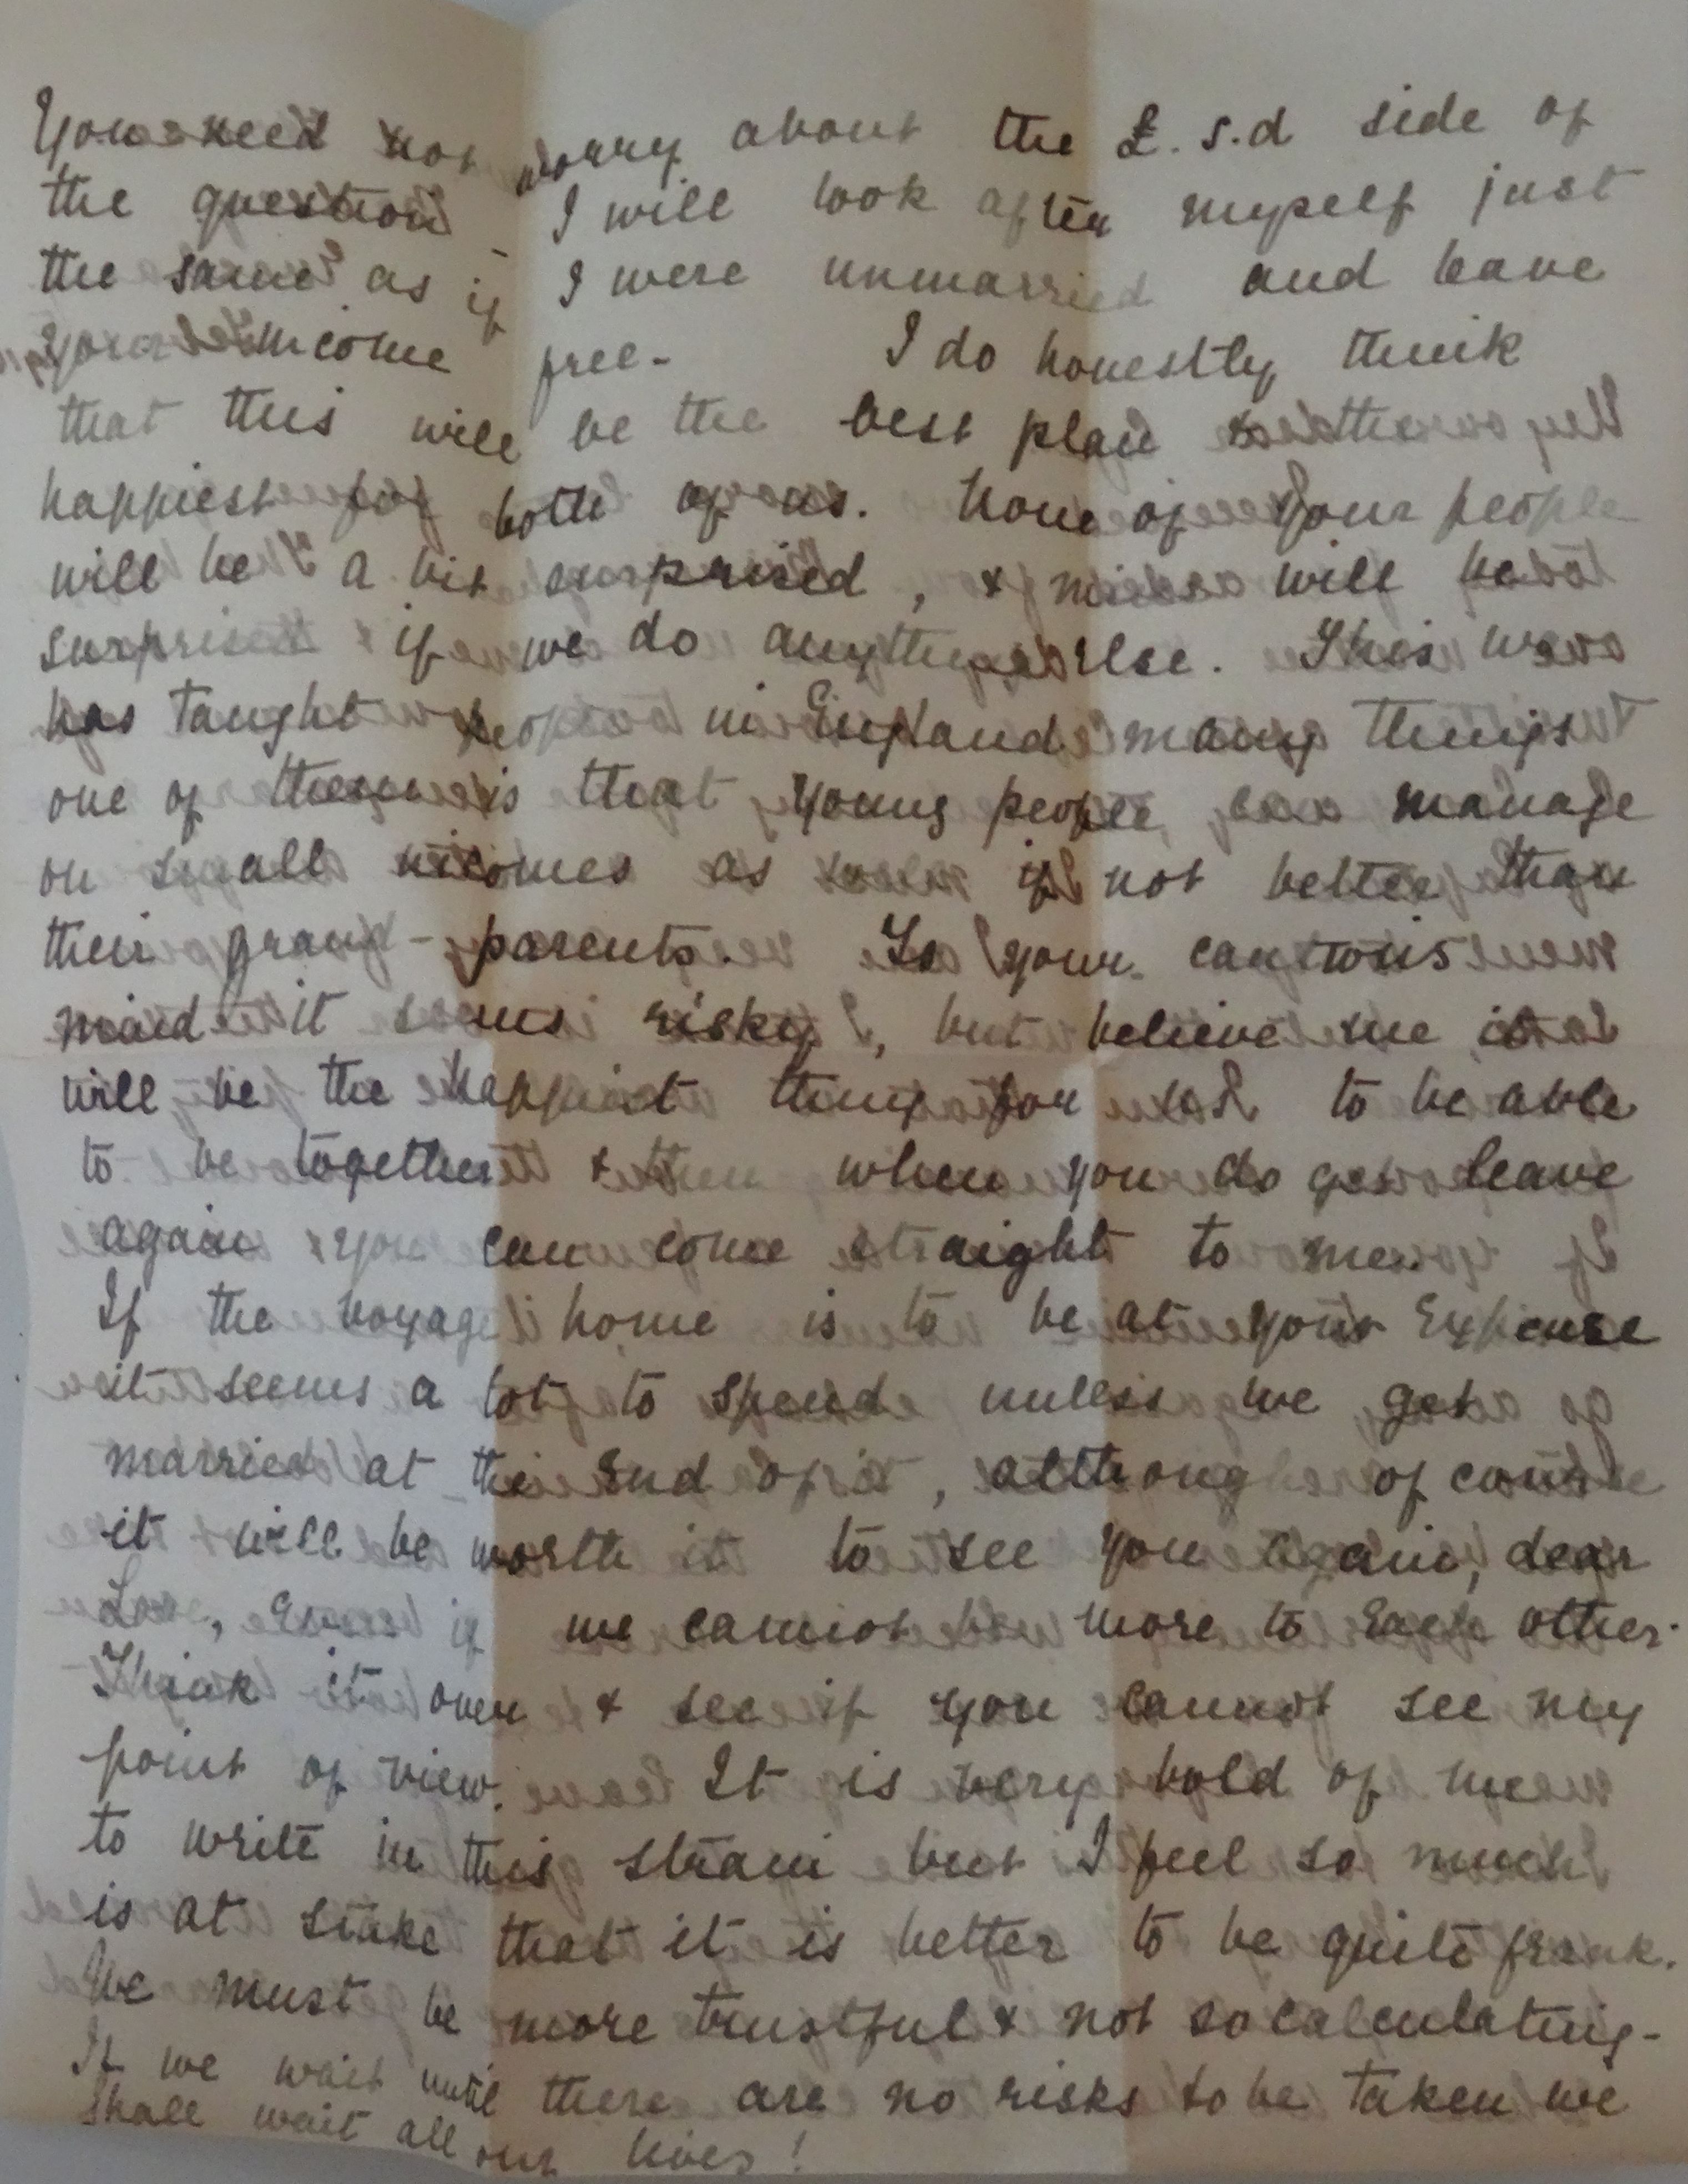 You need not worry about the £.s.d side of
the question - I will look after myself just
the same as if I were unmarried and leave
your income free - I do honestly think
that this will be the best plan & the
happiest for both of us. None of your people
will be a bit surprised, & mine will be
surprised if we do anything else. This war
has taught people in England many things
one of them is that young people can manage
on small incomes as well if not better than
their grand-parents. To your cautious
mind it seems risky, but believe me it
will be the happiest thing for us to be able
to be together & then when you do get leave
again you can come straight to me.
If the voyage home is to be at your Expense
it seems a lot to spend unless we get
married at the End of it, although of course
it will be worth it to see you again, dear
Love, Even if we cannot be more to Each other.
Think it over & see if you cannot see my
point of view. It is very bold of me
to write in this strain but I feel so much
is at stake that it is better to be quite frank.
We must be more trustful & not so calculating -
If we wait until there are no risks to be taken we
shall wait all our lives!